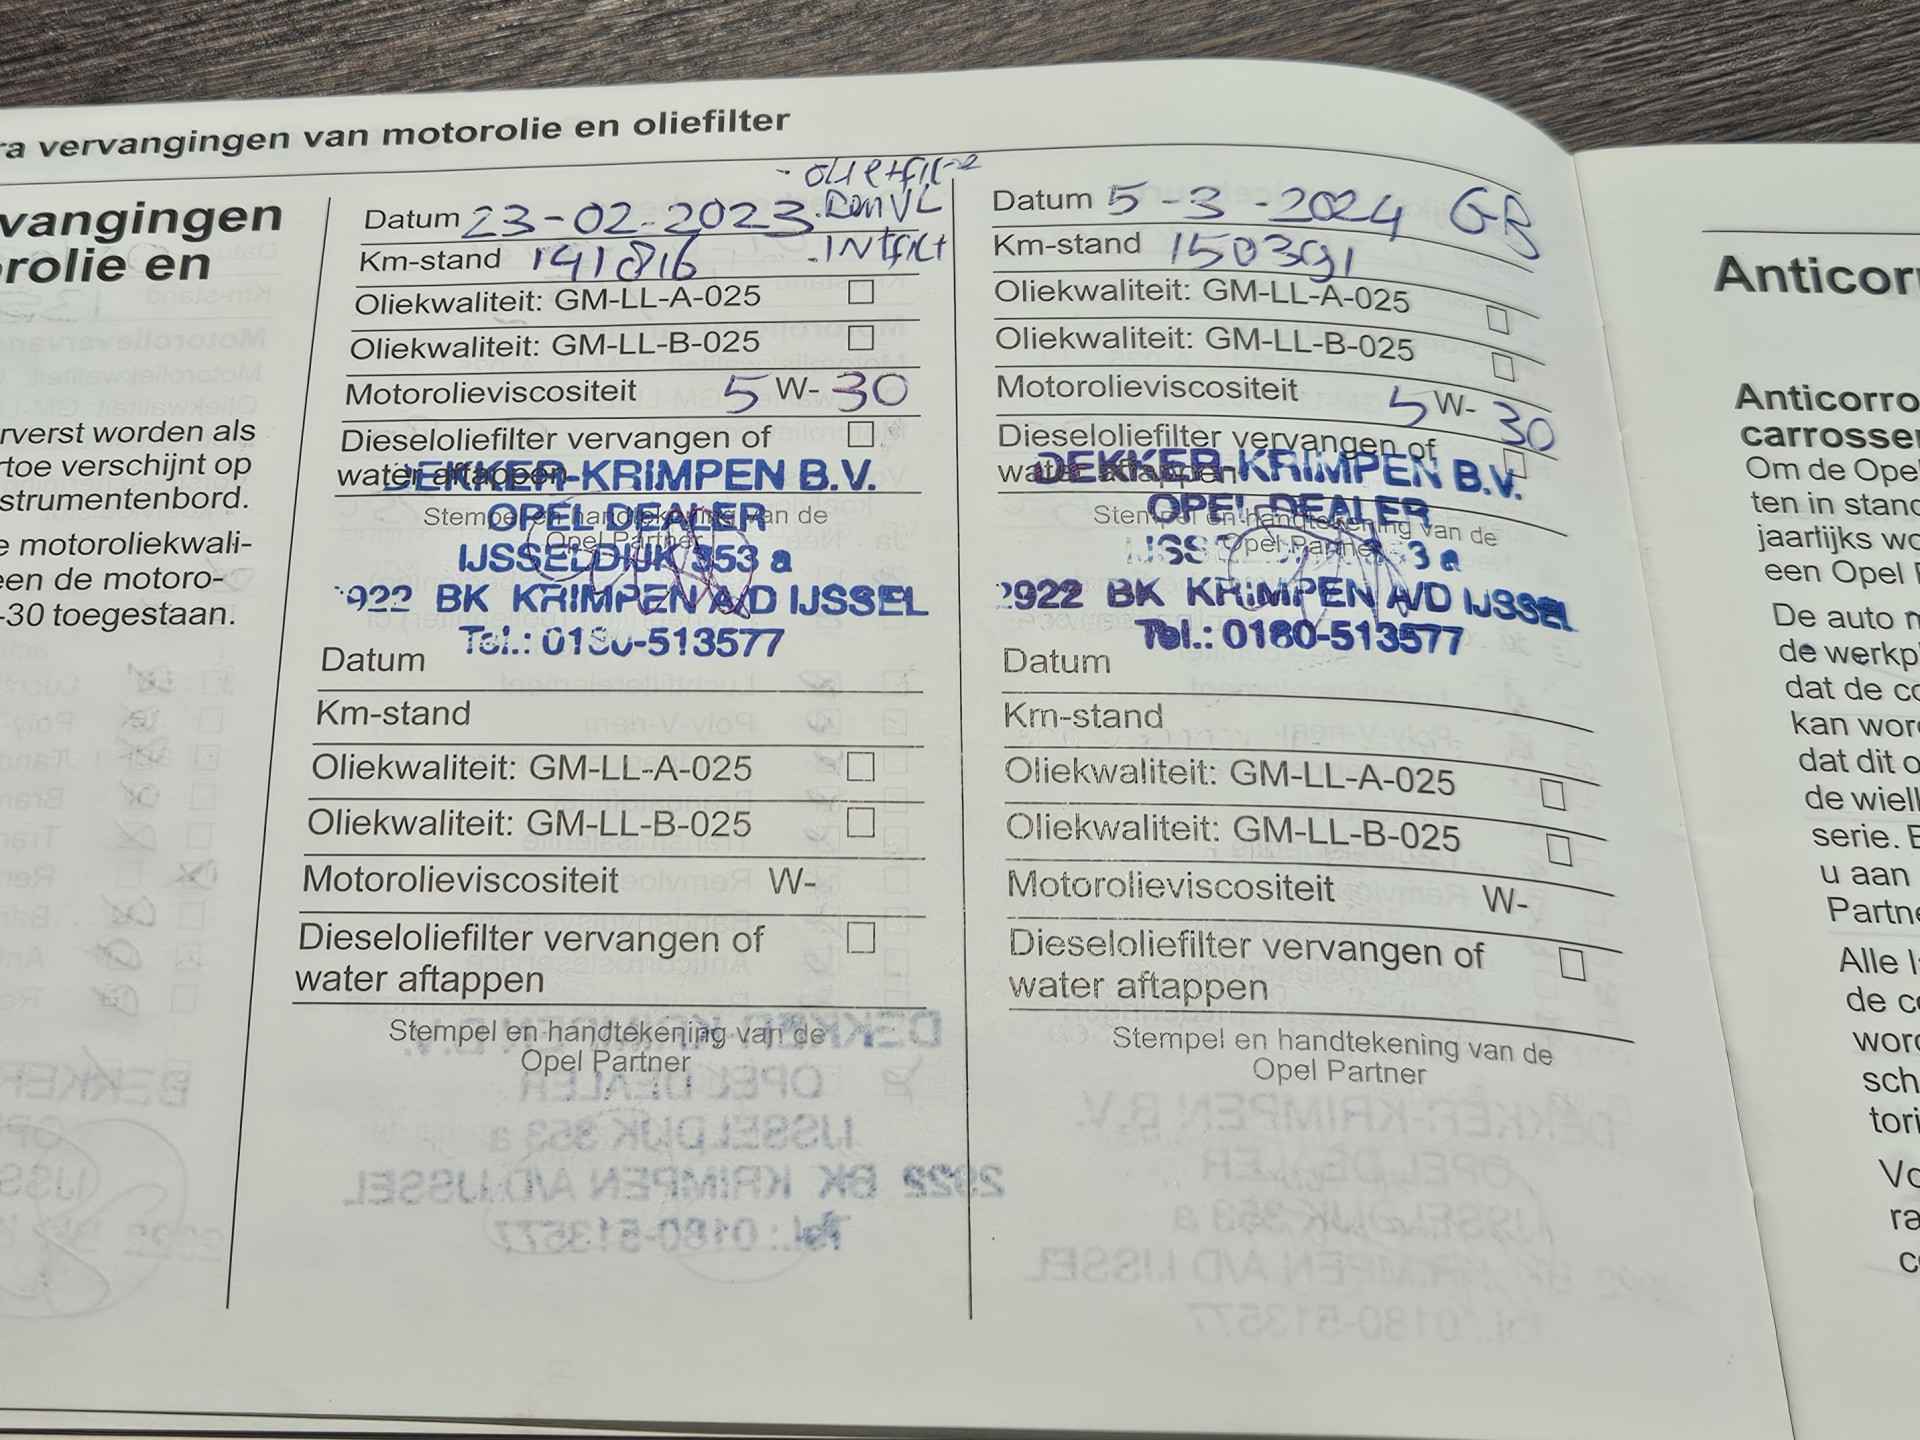 ra vervangingen van motorolie en oliefilter
vangingen
orolie en
rverst worden als
rtoe verschijnt op
strumentenbord.
e motoroliekwali-
een de motoro-
-30 toegestaan.
Datum 23-02-2023
Km-stand 141816
Oliekwaliteit: GM-LL-A-025
Oliekwaliteit: GM-LL-B-025
Motorolieviscositeit 5 W- 30
Dieseloliefilter vervangen of
water aftappen
DEKKER-KRIMPEN B.V.
Stempel en handtekening van de
OPEL DEALER
Opel Partner
IJSSELDIJK 353 a
2922 BK KRIMPEN A/D IJSSEL
Tel.: 0180-513577
Datum
Km-stand
Oliekwaliteit: GM-LL-A-025
Oliekwaliteit: GM-LL-B-025
Motorolieviscositeit W-
Dieseloliefilter vervangen of
water aftappen
Stempel en handtekening van de
Opel Partner
Datum 5-3-2024 GB
Km-stand 150391
Oliekwaliteit: GM-LL-A-025
Oliekwaliteit: GM-LL-B-025
Motorolieviscositeit 5 W- 30
Dieseloliefilter vervangen of
water aftappen
DEKKER-KRIMPEN B.V.
OPEL DEALER
Stempel en handtekening van de
Opel Partner
IJSSELDIJK 353 a
2922 BK KRIMPEN A/D IJSSEL
Tel.: 0180-513577
Datum
Km-stand
Oliekwaliteit: GM-LL-A-025
Oliekwaliteit: GM-LL-B-025
Motorolieviscositeit W-
Dieseloliefilter vervangen of
water aftappen
Stempel en handtekening van de
Opel Partner
Anticorr
Anticorro
carrosser
Om de Opel
ten in stand
jaarlijks wo
een Opel P
De auto m
de werkp
dat de co
kan word
dat dit o
de wiell
serie. E
u aan
Partne
Alle l
de co
word
sch
tori
Vo
ra
co